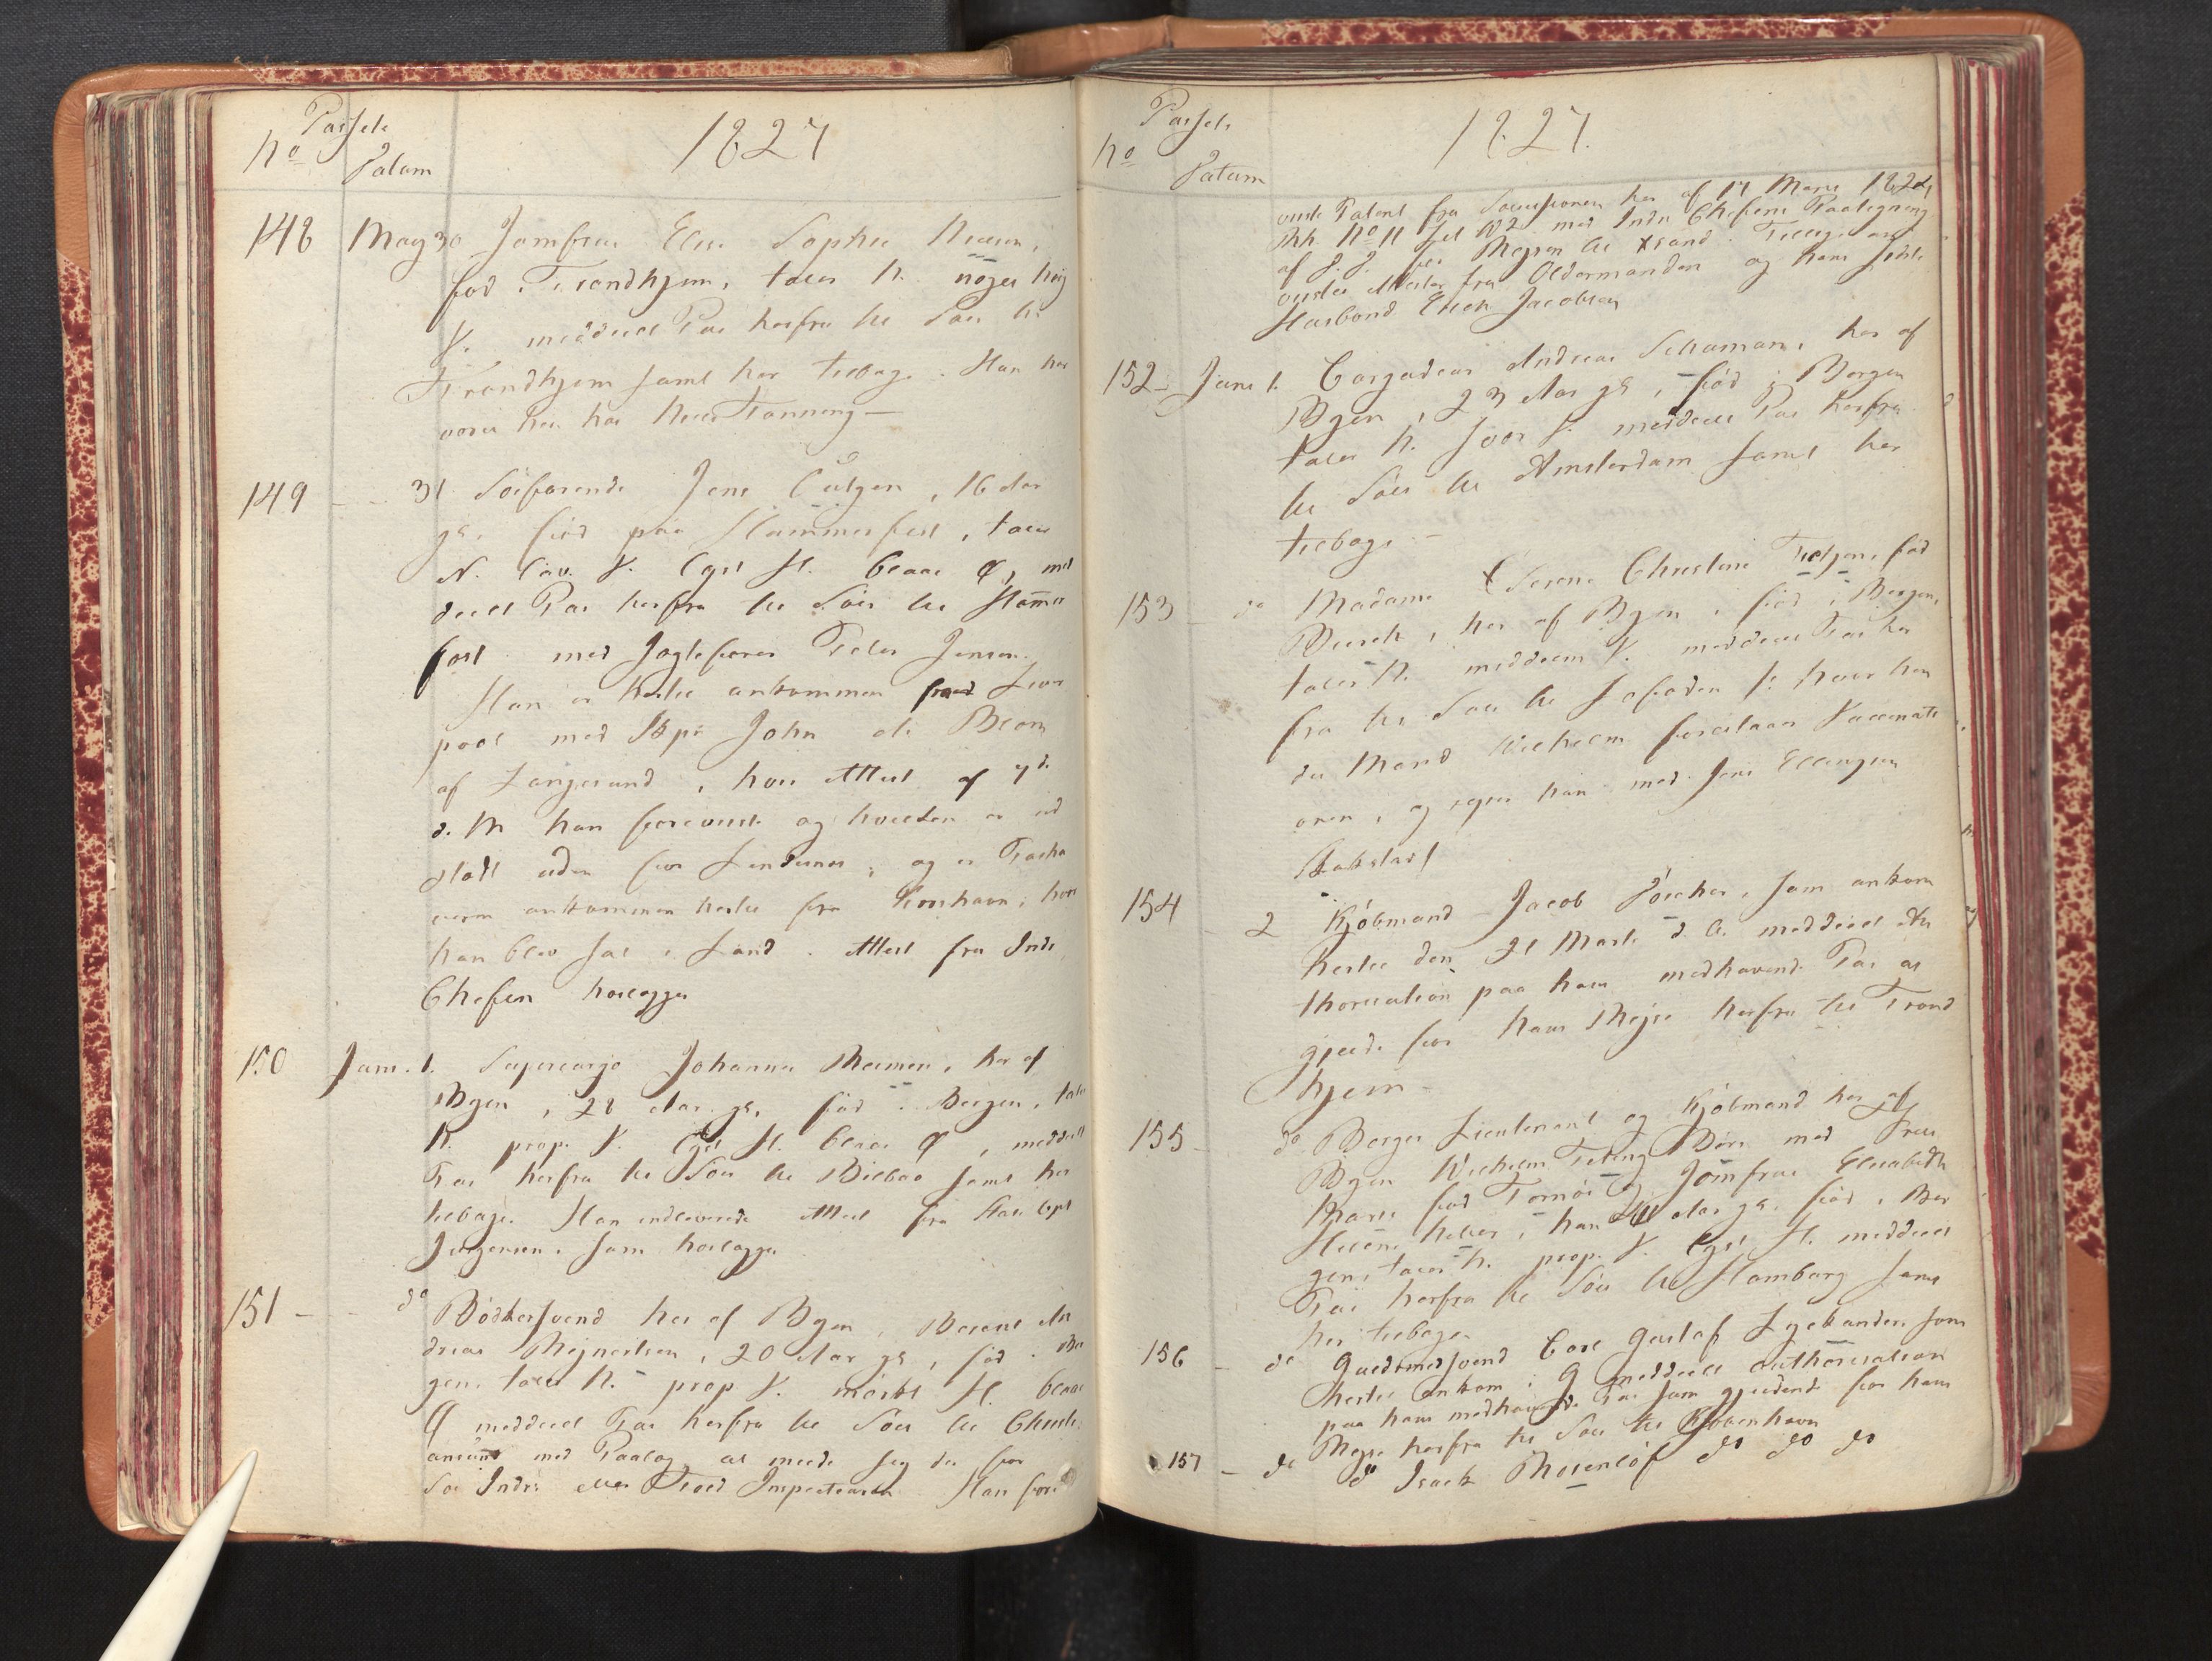 Passets
No
Datum
1827
148 May 30 Jomfrue Elise Sophie
fød i Trondhjem, taler N. noget høy
V. meddeelt Pas herfra til Søes til
Trondhjem samt her tilbage. Hun har
været her hos
149 - - 31 Søefarende Jens 16 Aar
gl, fød paa Hammerfest, taler
N. lav. V. lyst H. blaae Ø, med
deelt Pas herfra til Søes til Hamer
fest med Jagtefører Peder Jensen.
Han er hertil ankommen fra Liver
pool med Skpr John
af Langesund, hvis Attest af 4de
d. M han foreviste og hvilken er ud
stædt uden for Lindesnes, og er
ankommen hertil fra hvor
han blev sat i Land. Attest fra Indr
Chefen hoslagger
150 Juni 1. Supercargo Johannes her af
Byen, 28 Aar gl, fød i Bergen, taler
N. prop. V. lyst H. blaae Ø, meddeelt
Pas herfra til Søes til Bilbao samt her
tilbage. Han indleverede Attest fra
Jørgensen, som hoslagger
151 - - do Bødkersvend her af Byen, Berent An
dreas Mejnertsen, 20 Aar gl, fød i Ber
gen, taler N. prop V. mørkt H. blaae
Ø meddeelt Pas herfra til Søes til Christi
ansund med Paalæg at melde sig der for
Søe Indr: eller Told Inspecteuren. Han fore
Passets
No
Datum
1827.
viste Patent fra her af 17 Marts 1824
No 11 Fol 102 med Indr Chefens Paategning
af d. D. for Rejsen til Xsand. Tillige
viste Attester fra Oldermanden og hans sidste
Huusbond Erich Jacobsen
152 - Juni 1. Cargadeur Andreas Schumann, her af
Byen, 23 Aar gl, fød i Bergen
taler N. svær V. meddeelt Pas herfra
til Søes til Amsterdam samt her
tilbage -
153 - do Madame Serene Christine fød
Busch, her af Byen, fød i Bergen,
taler N. middelm V. meddeelt Pas her
fra til Søes til hvor hen
des Mand Wilhelm forestaaer Vaccinati
onen, og rejser hun med Jens Ellingsen
154 - 2 Kjøbmand Jacob som ankom
hertil den 21 Marts d. A. meddeelt Au
thorisation paa hans medhavende Pas at
gjelde for hans Rejse herfra til Trond
hjem -
155 - do Borger Lieutenant og Kjøbmand her af
Byen Wilhelm Bøn med Frue
Marie fød og Jomfrue Elisabeth
Helene han Aar gl. fød i Ber
gen, taler N. prop. V. lyst H. meddeelt
Pas herfra til Søes til Hamborg samt
her tilbage
156 - do Guldsmedsvend Carl Gustaf som
hertil ankom i meddeelt authorisation
paa hans medhavende Pas som gjeldende for hans
Rejse herfra til Søes til Kjøbenhavn
157 - do do Isack Rosenlöf do do do